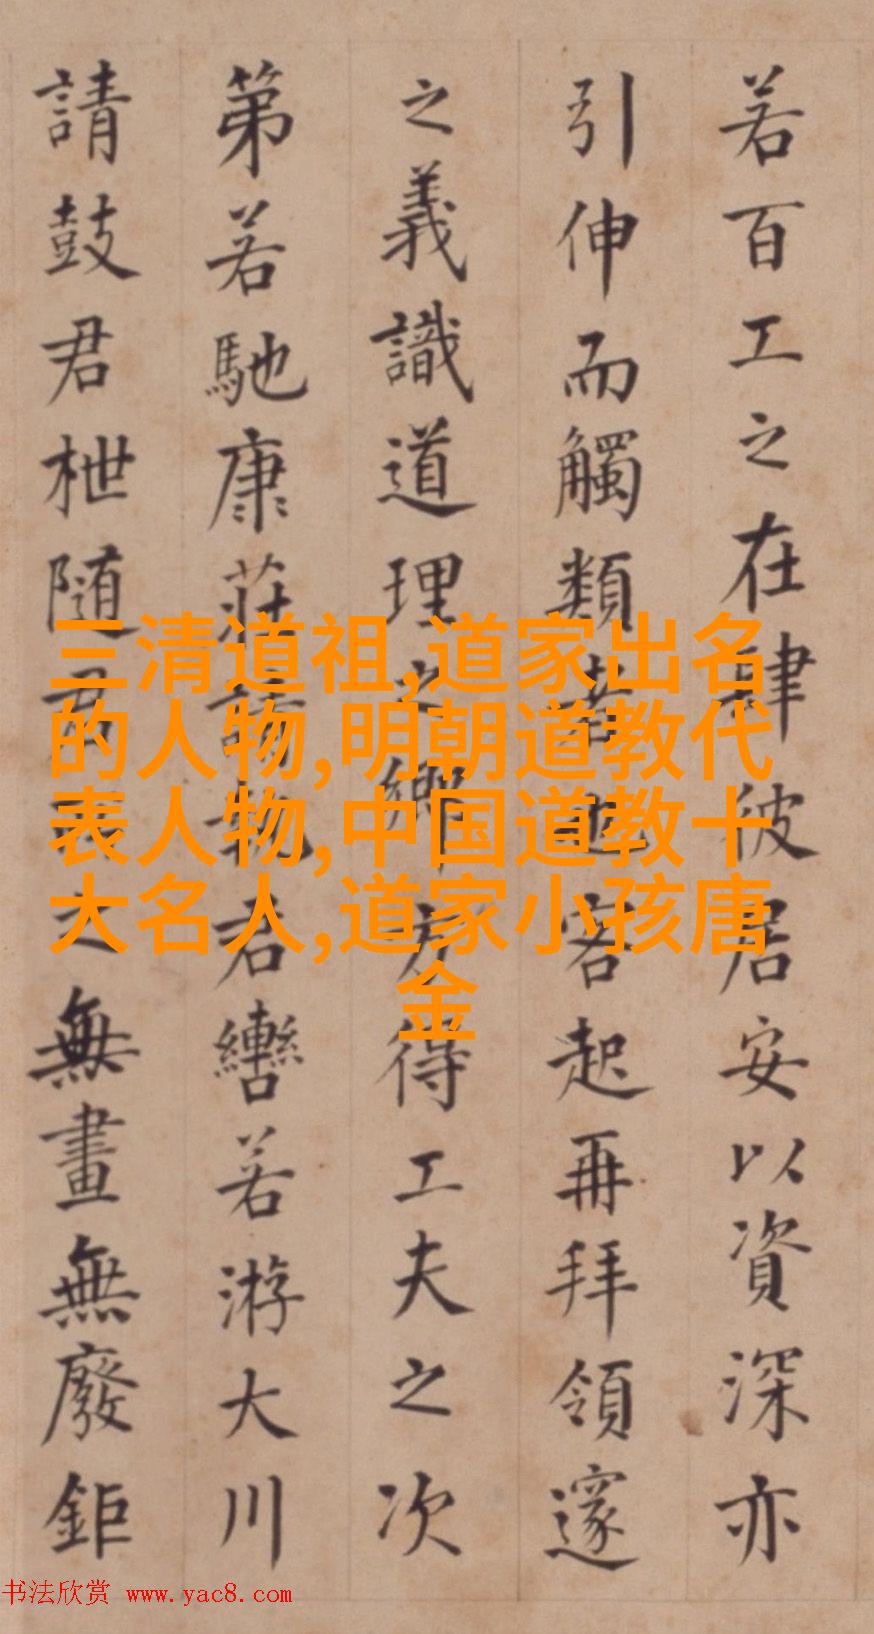 若百工之在肆彼居安以資深亦
引伸而觸類者也客起再拜領邃
之義識道理之鄉方得工夫之次
第若馳康莊請執君轡若游大川
請鼓君枻隨君之無畫無廢鉅
三清道祖,道家出名
的人物,明朝道教代
表人物,中国道教十
大名人,道家小孩唐
金
书法欣赏 www.yac8.com